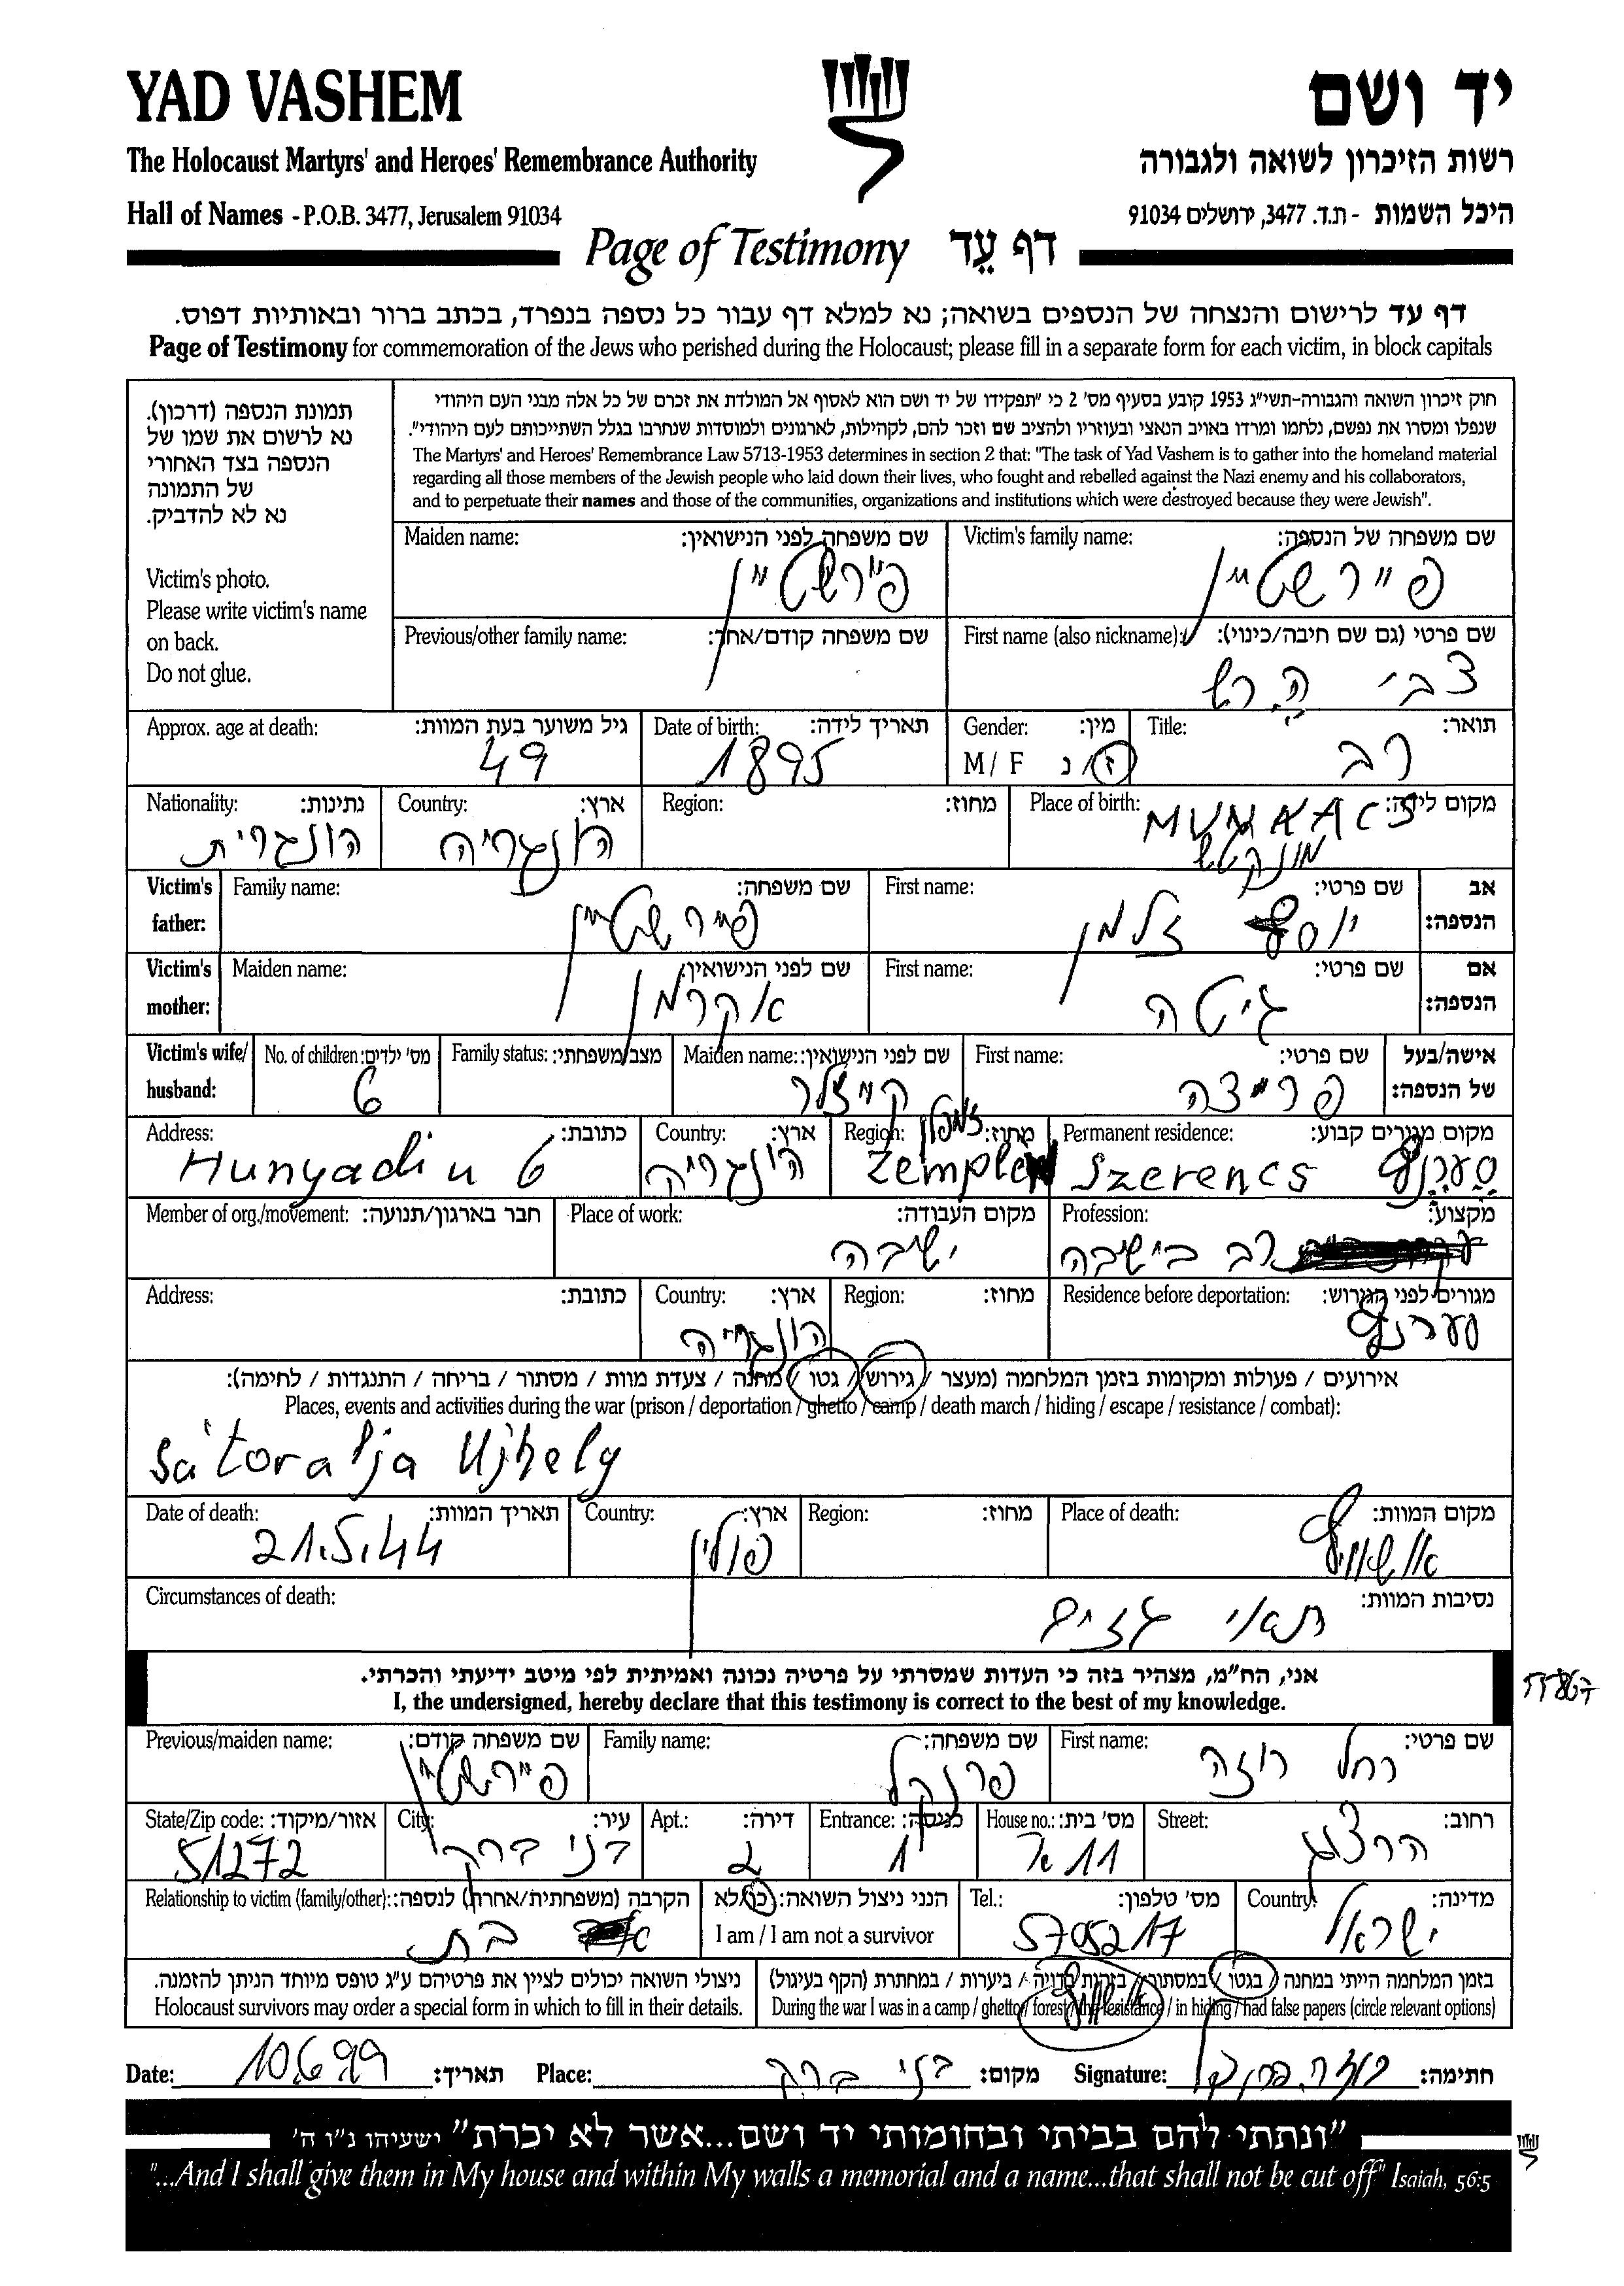 YAD VASHEM
יד ושם
The Holocaust Martyrs' and Heroes' Remembrance Authority
רשות הזיכרון לשואה ולגבורה
Hall of Names - P.O.B. 3477, Jerusalem 91034
היכל השמות - ת.ד. 3477, ירושלים 91034
Page of Testimony דף עֵד
דף עד לרישום והנצחה של הנספים בשואה; נא למלא דף עבור כל נספה בנפרד, בכתב ברור ובאותיות דפוס.
Page of Testimony for commemoration of the Jews who perished during the Holocaust; please fill in a separate form for each victim, in block capitals
תמונת הנספה (דרכון).
נא לרשום את שמו של
הנספה בצד האחורי
של התמונה
נא לא להדביק.
Victim's photo.
Please write victim's name
on back.
Do not glue.
חוק זיכרון השואה והגבורה-תשי"ג 1953 קובע בסעיף מס' 2 כי "תפקידו של יד ושם הוא לאסוף אל המולדת את זכרם של כל אלה מבני העם היהודי
שנפלו ומסרו את נפשם, נלחמו ומרדו באויב הנאצי ובעוזריו ולהציב שם וזכר להם, לקהילות, לארגונים ולמוסדות שנחרבו בגלל השתייכותם לעם היהודי".
The Martyrs' and Heroes' Remembrance Law 5713-1953 determines in section 2 that: "The task of Yad Vashem is to gather into the homeland material
regarding all those members of the Jewish people who laid down their lives, who fought and rebelled against the Nazi enemy and his collaborators,
and to perpetuate their names and those of the communities, organizations and institutions which were destroyed because they were Jewish".
Victim's family name: שם משפחה של הנספה:
פיירשטיין
Maiden name: שם משפחה לפני הנישואין:
פיירשטיין
First name (also nickname): שם פרטי (גם שם חיבה/כינוי):
צבי הרש
Previous/other family name: שם משפחה קודם/אחר:
Title: תואר:
רב
Gender: מין:
M / F ז / נ
Date of birth: תאריך לידה:
1895
Approx. age at death: גיל משוער בעת המוות:
49
Place of birth: מקום לידה:
MUNKACS
מונקטש
Region: מחוז:
Country: ארץ:
הונגריה
Nationality: נתינות:
הונגרית
Victim's father: אב הנספה:
First name: שם פרטי:
יוסף זלמן
Family name: שם משפחה:
פיירשטיין
Victim's mother: אם הנספה:
First name: שם פרטי:
גיטה
Maiden name: שם לפני הנישואין:
אקרמן
Victim's wife/husband: אישה/בעל של הנספה:
First name: שם פרטי:
פריצה
Maiden name: שם לפני הנישואין:
קיזלר
Family status: מצב משפחתי:
No. of children: מס' ילדים:
6
Permanent residence: מקום מגורים קבוע:
Szerencs סערנץ
Region: מחוז:
זמפלן
Zemplen
Country: ארץ:
הונגריה
Address: כתובת:
Hunyadi u 6
Profession: מקצוע:
רב בישיבה
Place of work: מקום העבודה:
ישיבה
Member of org./movement: חבר בארגון/תנועה:
Residence before deportation: מגורים לפני הגירוש:
סערנץ
Region: מחוז:
Country: ארץ:
הונגריה
Address: כתובת:
אירועים / פעולות ומקומות בזמן המלחמה (מעצר / גירוש / גטו / מחנה / צעדת מוות / מסתור / בריחה / התנגדות / לחימה):
Places, events and activities during the war (prison / deportation / ghetto / camp / death march / hiding / escape / resistance / combat):
Sátoralja Ujhely
Place of death: מקום המוות:
אושוויץ
Region: מחוז:
Country: ארץ:
פולין
Date of death: תאריך המוות:
21.5.44
Circumstances of death: נסיבות המוות:
תאי גזים
אני, הח"מ, מצהיר בזה כי העדות שמסרתי על פרטיה נכונה ואמיתית לפי מיטב ידיעתי והכרתי.
I, the undersigned, hereby declare that this testimony is correct to the best of my knowledge.
First name: שם פרטי:
רחל רוזה
Family name: שם משפחה:
פרנקל
Previous/maiden name: שם משפחה קודם:
פיירשטיין
Street: רחוב:
הרצוג
House no.: מס' בית:
11
Entrance: כניסה:
1
Apt.: דירה:
2
City: עיר:
בני ברק
State/Zip code: אזור/מיקוד:
51272
Country: מדינה:
ישראל
Tel.: מס' טלפון:
5795217
הנני ניצול השואה: כן/לא
I am / I am not a survivor
Relationship to victim (family/other): הקרבה (משפחתית/אחרת) לנספה:
בת
בזמן המלחמה הייתי במחנה / בגטו / במסתור / בזהות בדויה / ביערות / במחתרת (הקף בעיגול)
During the war I was in a camp / ghetto / forest / the resistance / in hiding / had false papers (circle relevant options)
ניצולי השואה יכולים לציין את פרטיהם ע"ג טופס מיוחד הניתן להזמנה.
Holocaust survivors may order a special form in which to fill in their details.
Date: 10.6.99 תאריך: Place: בני ברק מקום: Signature: רוזה פרנקל חתימה:
"ונתתי להם בביתי ובחומותי יד ושם...אשר לא יכרת" ישעיהו נ"ו ה'
"...And I shall give them in My house and within My walls a memorial and a name...that shall not be cut off" Isaiah, 56:5